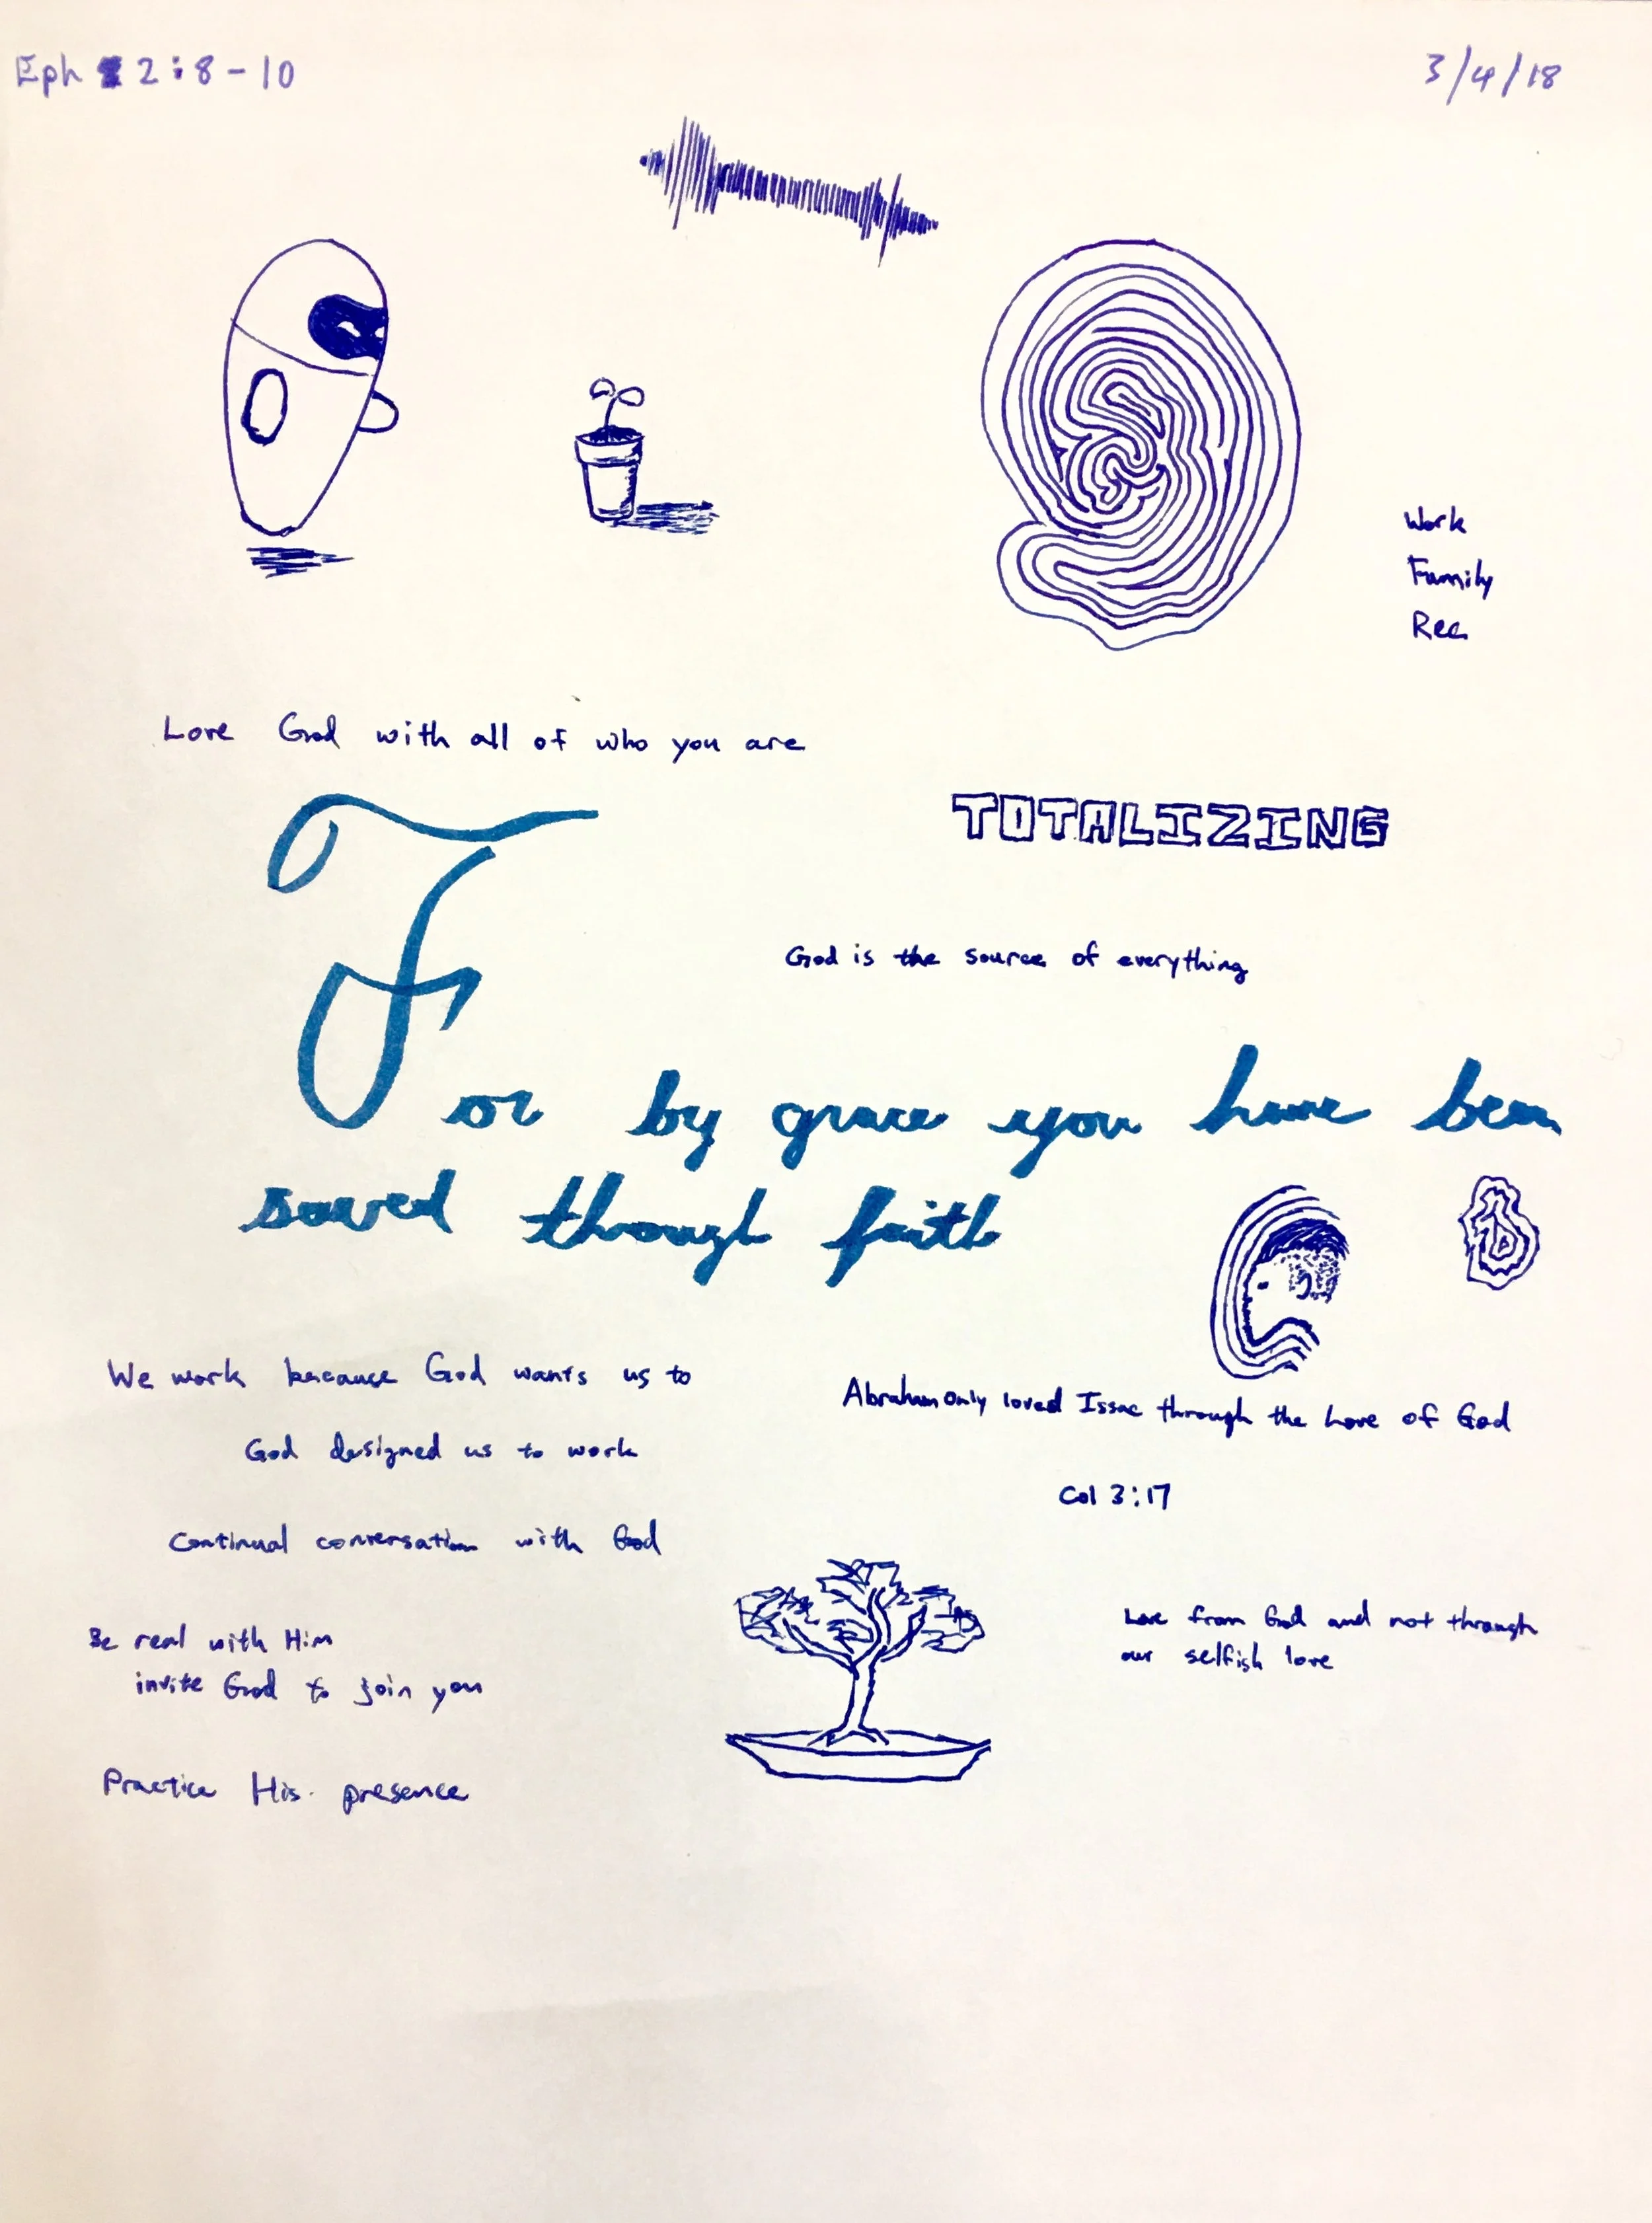 Eph 2:8-10
3/4/18
Work
Family
Rec
Love God with all of who you are
TOTALIZING
God is the source of everything
For by grace you have been
saved through faith
We work because God wants us to
God designed us to work
Abraham only loved Issac through the Love of God
Col 3:17
Continual conversation with God
Love from God and not through
our selfish love
Be real with Him
invite God to join you
Practice His presence